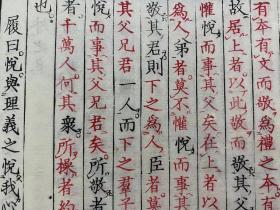 有本有文敬為禮之本
故居上者以此敬而敬其父
惟悅而事其父矣在上者以
為人弟者莫不惟悅而事其
敬其君則下之為人臣者莫
其父兄君一人而下之羣子
悅而事其父兄君矣所敬者
者千萬人何其衆所操者約
也
履曰悅與理義之悅我心